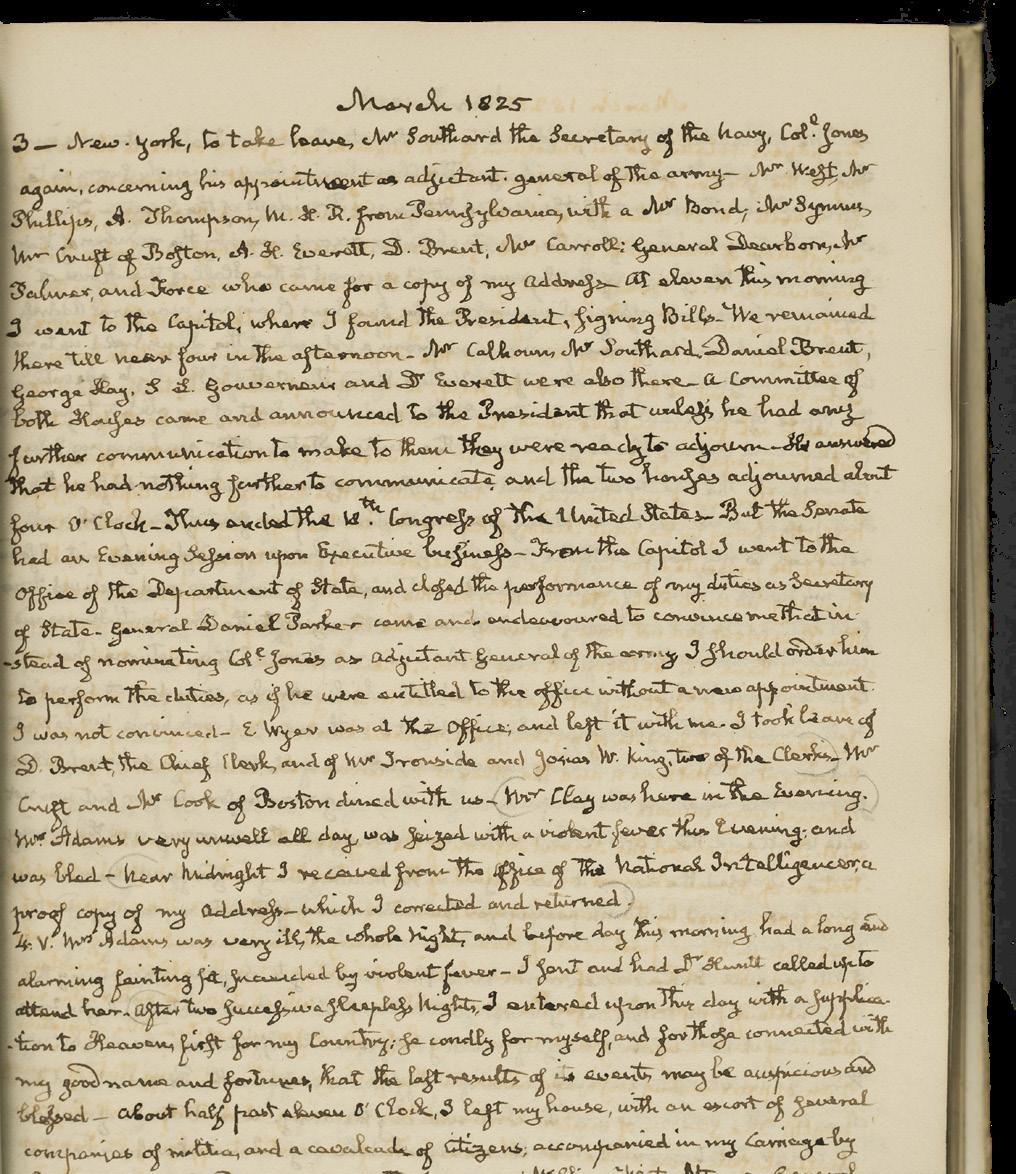 March 1825
3 — New-York, to take leave, Mr Southard the Secretary of the Navy, Coll Jones
again, concerning his appointment as adjutant. general of the army — Mr West, Mr
Phillips, A. Thompson, M. H. R. from Pennsylvania, with a Mr Bond, Mr Symmes,
Mr Cruft of Boston, A. H. Everett, D. Brent, Mr Carroll; General Dearborn, Mr
Palmer, and Force who came for a copy of my Address — At eleven this morning
I went to the Capitol, where I found the President, signing Bills — We remained
there till near four in the afternoon — Mr Calhoun, Mr Southard, Daniel Brent,
George Hay, S L. Gouverneur and Dr Everett were also there — A Committee of
both Houses came and announced to the President that unless he had any
further communication to make to them they were ready to adjourn — He answered
that he had nothing further to communicate, and the two houses adjourned about
four O'Clock — Thus ended the 18.th Congress of the United States — But the Senate
had an Evening Session upon Executive business — From the Capitol I went to the
Office of the Department of State, and closed the performance of my duties as Secretary
of State — General Daniel Parker came and endeavoured to convince me that in-
-stead of nominating Coll Jones as Adjutant General of the army I should order him
to perform the duties, as if he were entitled to the office without a new appointment.
I was not convinced — E Wyer was at the Office, and left it with me. I took leave of
D. Brent, the Chief Clerk, and of Mr Ironside and Josias W. King, two of the Clerks — Mr
Cruft and Mr Cook of Boston dined with us — Mr Clay was here in the Evening.
Mrs Adams very unwell all day, was seized with a violent fever this Evening; and
was bled — Near Midnight I received from the office of the National Intelligencer, a
proof copy of my Address — which I corrected and returned.
4. V. Mrs Adams was very ill, the whole Night, and before day this morning had a long and
alarming fainting fit, succeeded by violent fever — I sent and had Dr Huntt called up to
attend her. After two successive sleepless Nights, I entered upon this day with a supplica-
-tion to Heaven, first for my Country; secondly for myself, and for those connected with
my good name and fortunes, that the last results of its events may be auspicious and
blessed — About half past eleven O'Clock, I left my house, with an escort of several
companies of militia, and a cavalcade of Citizens; accompanied in my Carriage by